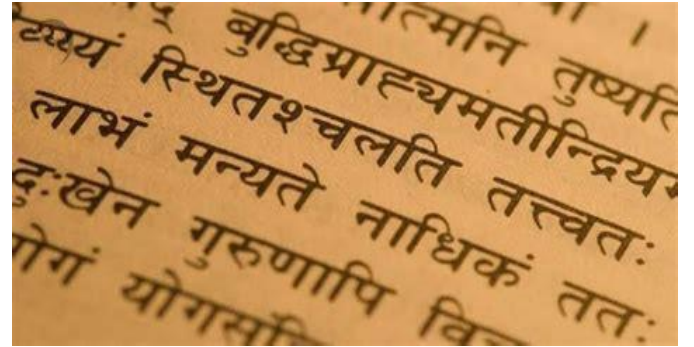 त्मनि तुष्यति
बुद्धिग्राह्यमतीन्द्रियम
स्थितश्चलति तत्त्वतः
लाभं मन्यते नाधिकं ततः
दुःखेन गुरुणापि
योगं